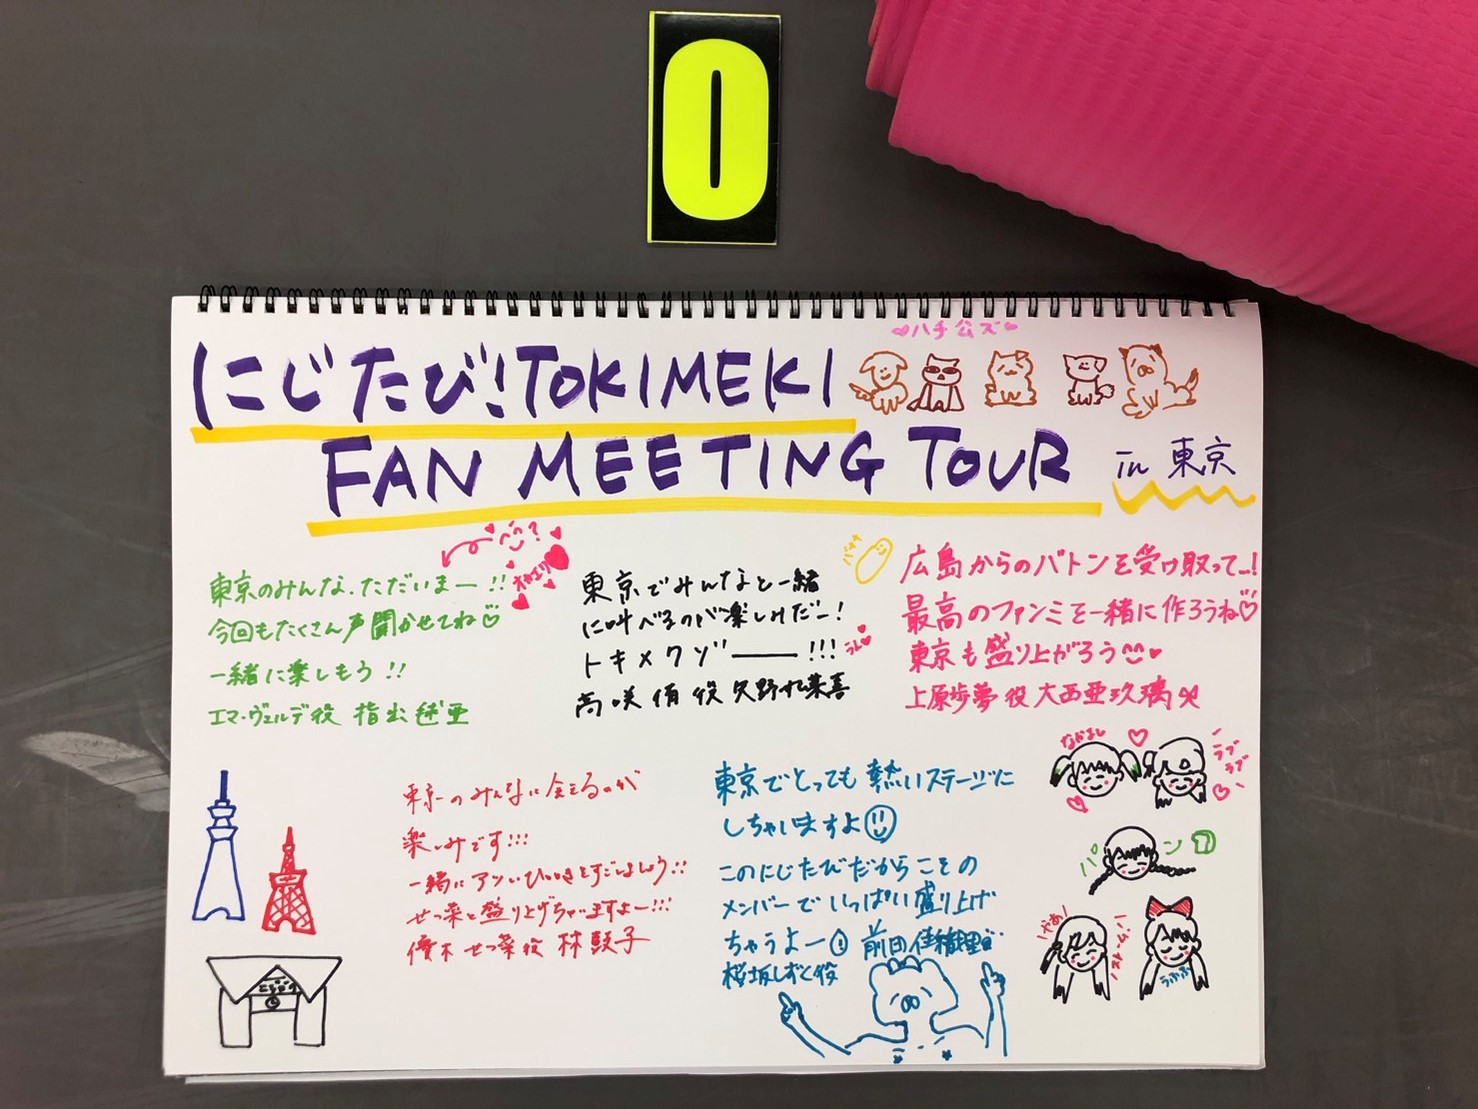 0
♡ハチ公ズ♡
にじたび!TOKIMEKI
FAN MEETING TOUR in 東京
オカエリ
東京のみんな、ただいまー!!
今回もたくさん声聞かせてね♡
一緒に楽しもう!!
エマ・ヴェルデ役 指出毬亜
東京でみんなと一緒
に叫べるのが楽しみだー!
トキメクゾ――!!!
高咲侑役 矢野妃菜喜
バナナ
広島からのバトンを受け取って…!
最高のファンミを一緒に作ろうね♡
東京も盛り上がろう
上原歩夢役 大西亜玖璃
東京のみんなに会えるのが
楽しみです!!!
一緒にアツいひとときをすごしましょう!!
せつ菜と盛り上げちゃいますよー!!!
優木せつ菜役 林鼓子
東京でとっても熱いステージに
しちゃいますよ
このにじたびだからこその
メンバーでいっぱい盛り上げ
ちゃうよー 前田佳織里
桜坂しずく役
なかよし
ラブ
ラブ
パン
やあ
うふふ